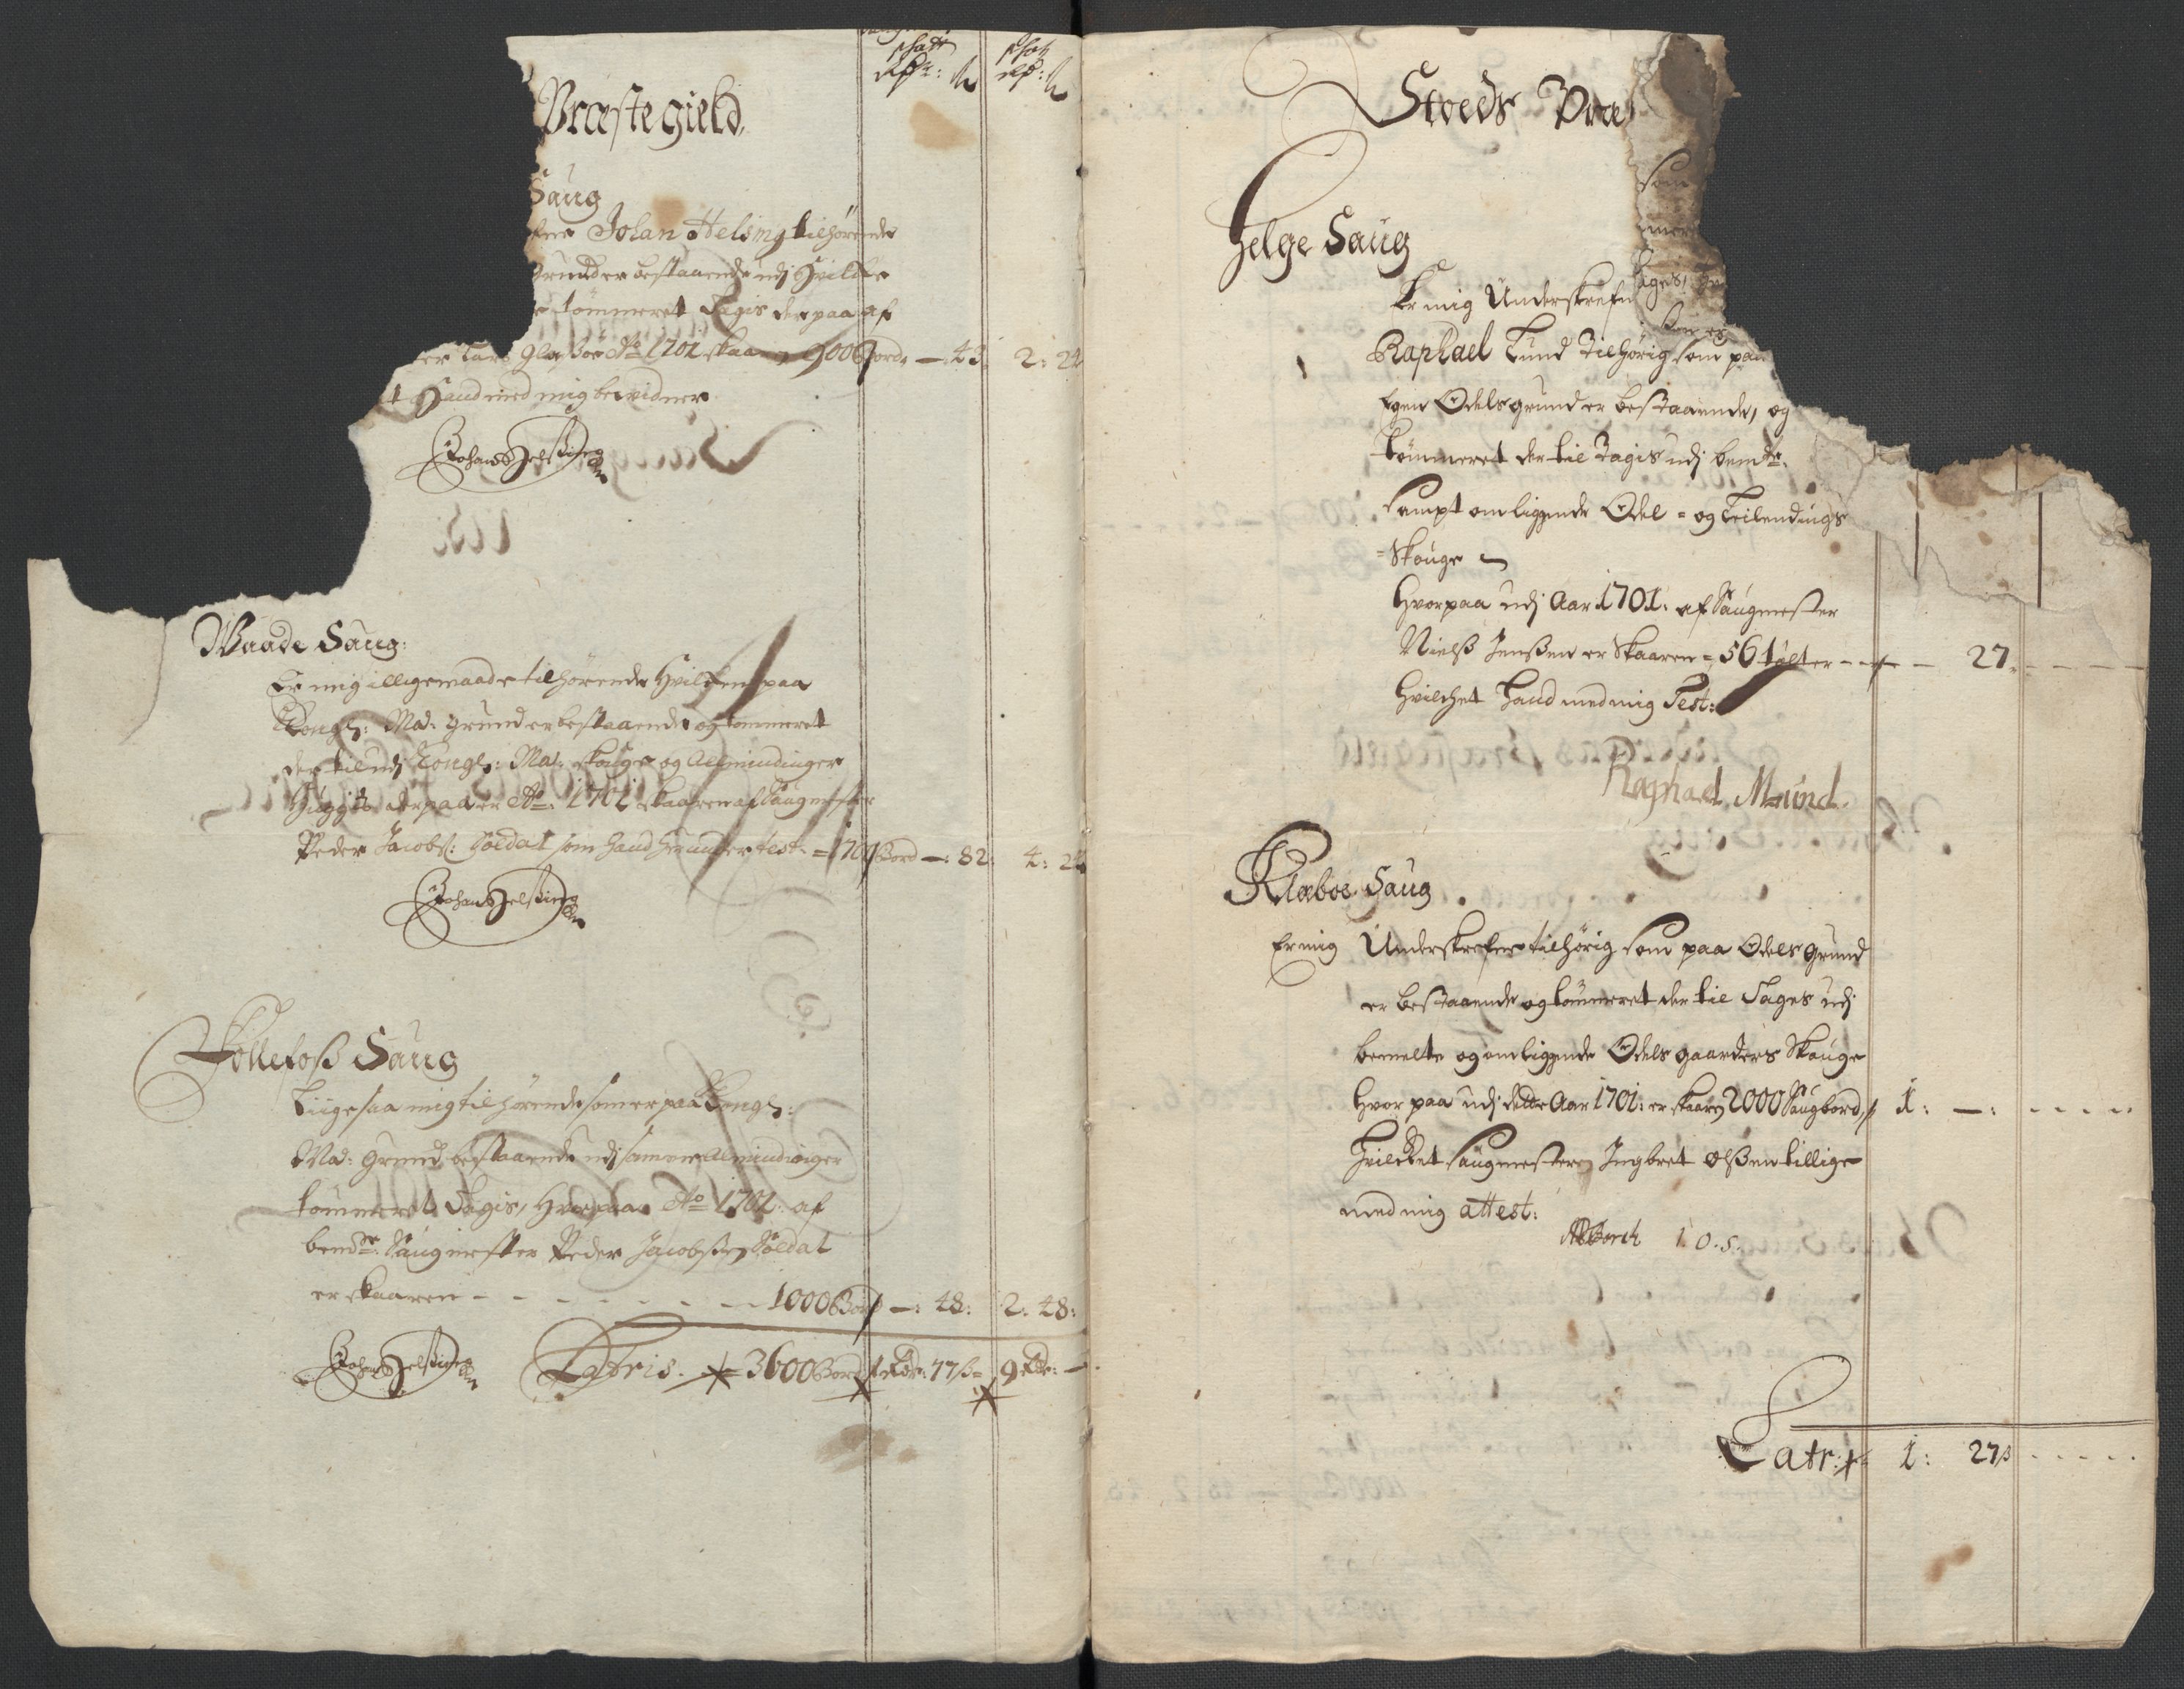 skatt
Rdr: ß
Præstegield,
Saug
Johan Helsing tilhørende
Grund er bestaaende udj Hvilcke
tømmeret Tagis der paa af
Ao 1701 skaaren 900 Bord — : 43 : 2 : 24
Haand med mig bevidner
Johan Helsing
Waade Saug :
Er mig illigemaade tilhørende Hvilcken paa
Kongl: Mad: grund er bestaaende og tømmeret
der til udj Kongl: Mai: skouge og Almindinger
Hugges der paa er Ao: 1701 skaaren af Saugmester
Peder Jacobs: Soldat som haand herunder test: = 1700 Bord — : 82 : 4 : 24
Johan Helsing
Follefoss Saug
Liigesaa mig tilhørende som er paa Kongl:
Mad: Grund bestaaende udj samme Almindinger
tømmeret Tagis, Hvorpaa Ao 1701 : af
bemte: Saugmester Peder Jacobßen Soldat
er skaaren - - - - - - 1000 Bord — : 48 : 2 : 48 :
Johan Helsing Latris. 3600 Bord 1 Rdr: 77 ß 9 Rdr: —
Stoeds Præ
som
Helge Saug
Er mig Underskrefn
Tages,
Raphael Lund Tilhørig som paa
Egen Odels grund er bestaaende, og
tømmeret der til Tagis udj bemte:
sampt omliggende Odel = og Leilendings
= Skouge
Hvorpaa udj Aar 1701 : af Saugmester
Nielß Jenßen er Skaaren = 56 tølter - - - 27 - - - -
Hvilchet Haand med mig Test:
Raphael Mund
Klæboe Saug
Er mig Underskrefne tilhørig som paa Odels grund
er bestaaende og tømmeret der til Tages udj
bemelte og omliggende Odels gaarders Skouge
Hvor paa udj dette Aar 1701 : er skaaren 2000 Saugbord 1 : — : - - - -
Hvilcket Saugmesteren Ingbret Olßen tillige
med mig attest:
I. O. S.
Latr: 1 : 27 ß - - - - -